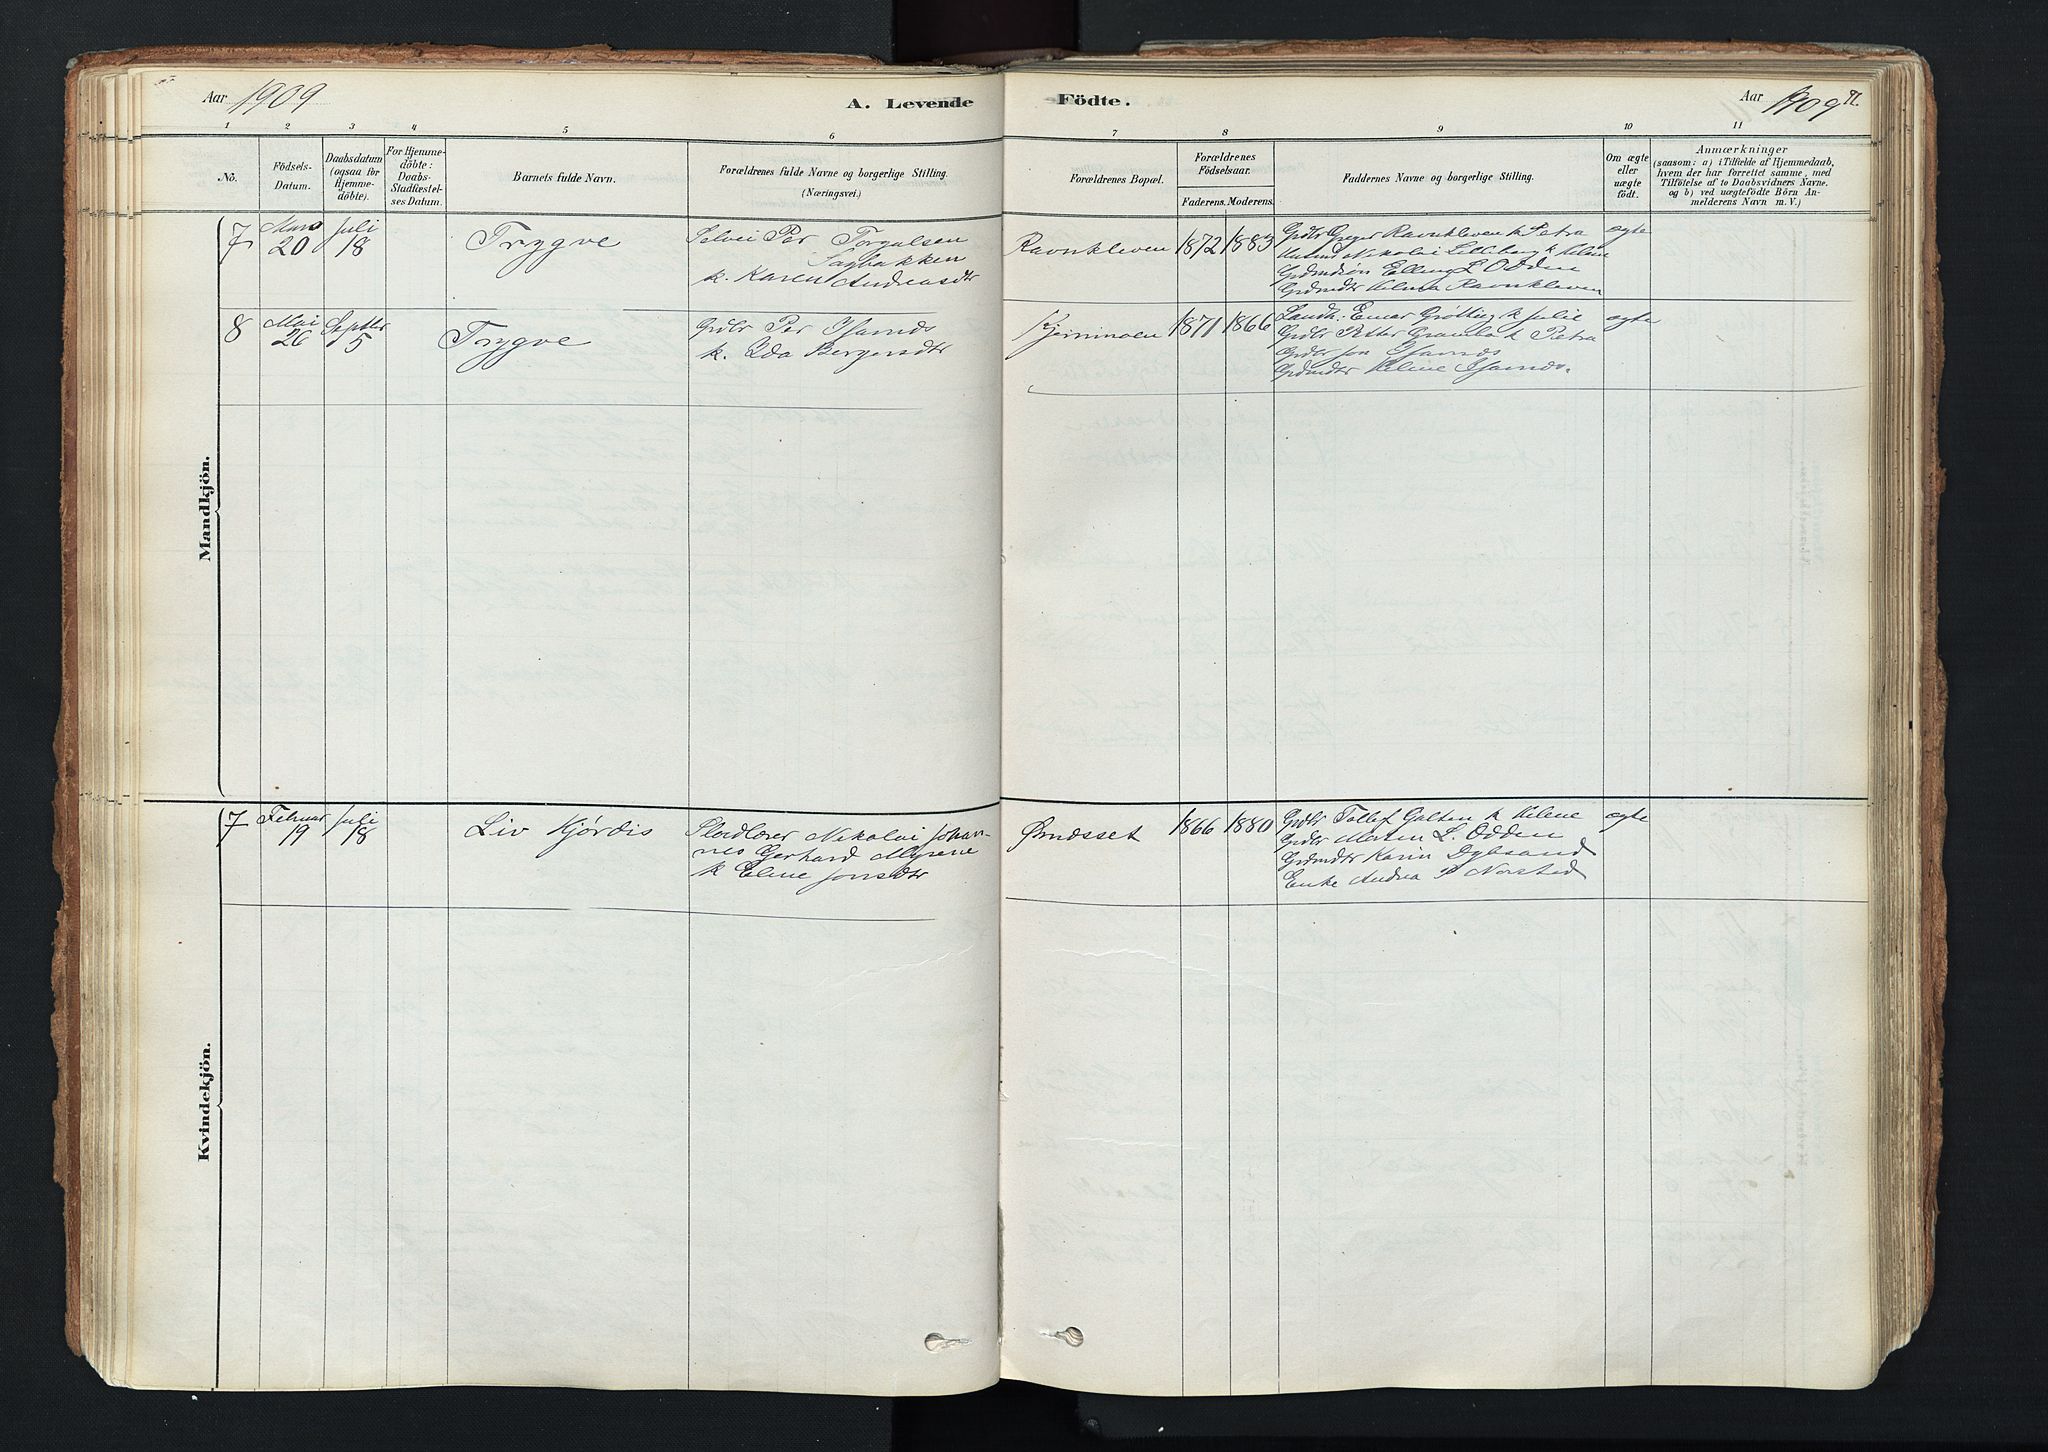 Aar 1909
A. Levende
Födte.
Aar 1909
71.
1 2 3 4 5 6 7 8 9 10 11
No.
Födsels-
Datum.
Daabsdatum
(ogsaa for
Hjemme-
döbte).
For Hjemme-
döbte:
Daabs-
Stadfæstel-
ses Datum.
Barnets fulde Navn.
Forældrenes fulde Navne og borgerlige Stilling.
(Næringsvei.)
Forældrenes Bopæl.
Forældrenes
Födselsaar.
Faderens. Moderens.
Faddernes Navne og borgerlige Stilling.
Om ægte
eller
uægte
födt.
Anmærkninger
(saasom: a) i Tilfælde af Hjemmedaab,
hvem der har forrettet samme, med
Tilföielse af to Daabsvidners Navne.
og b) ved uægtefödte Börn An-
melderens Navn m. V.)
Mandkjön.
7
Mars
20
Juli
18
Trygve
Selvei Per Torgalsen
Sagbakken
k. Karen Andreasdtr
Ravnkleven
1872
1883
Grdbr Greger Ravnkleven k Petra
Nikolai
Grdmdsön Elling L Odden
Grdmdtr Helma Ravnkleven
ægte
8
Mai
26
Septbr
5
Trygve
Grdbr Per
k. Ida Bergersdtr
Kjerrmoen
1871
1866
Landh. Einar Grötting k Julie
Grdbr Petter k Petra
Grdbr Jon
Grdmdtr Helene
ægte
Kvindekjön.
7
Februar
19
Juli
18
Liv Hjørdis
Nikolai Johan-
nes Gerhard Myrene
k Eline Jonsdtr
Ømdsset
1866
1880
Grdbr Tollef Galten k Helene
Grdbr Morten L. Odden
Grdmdtr Karin Dybsand
Enke Andrea P Norsted
ægte